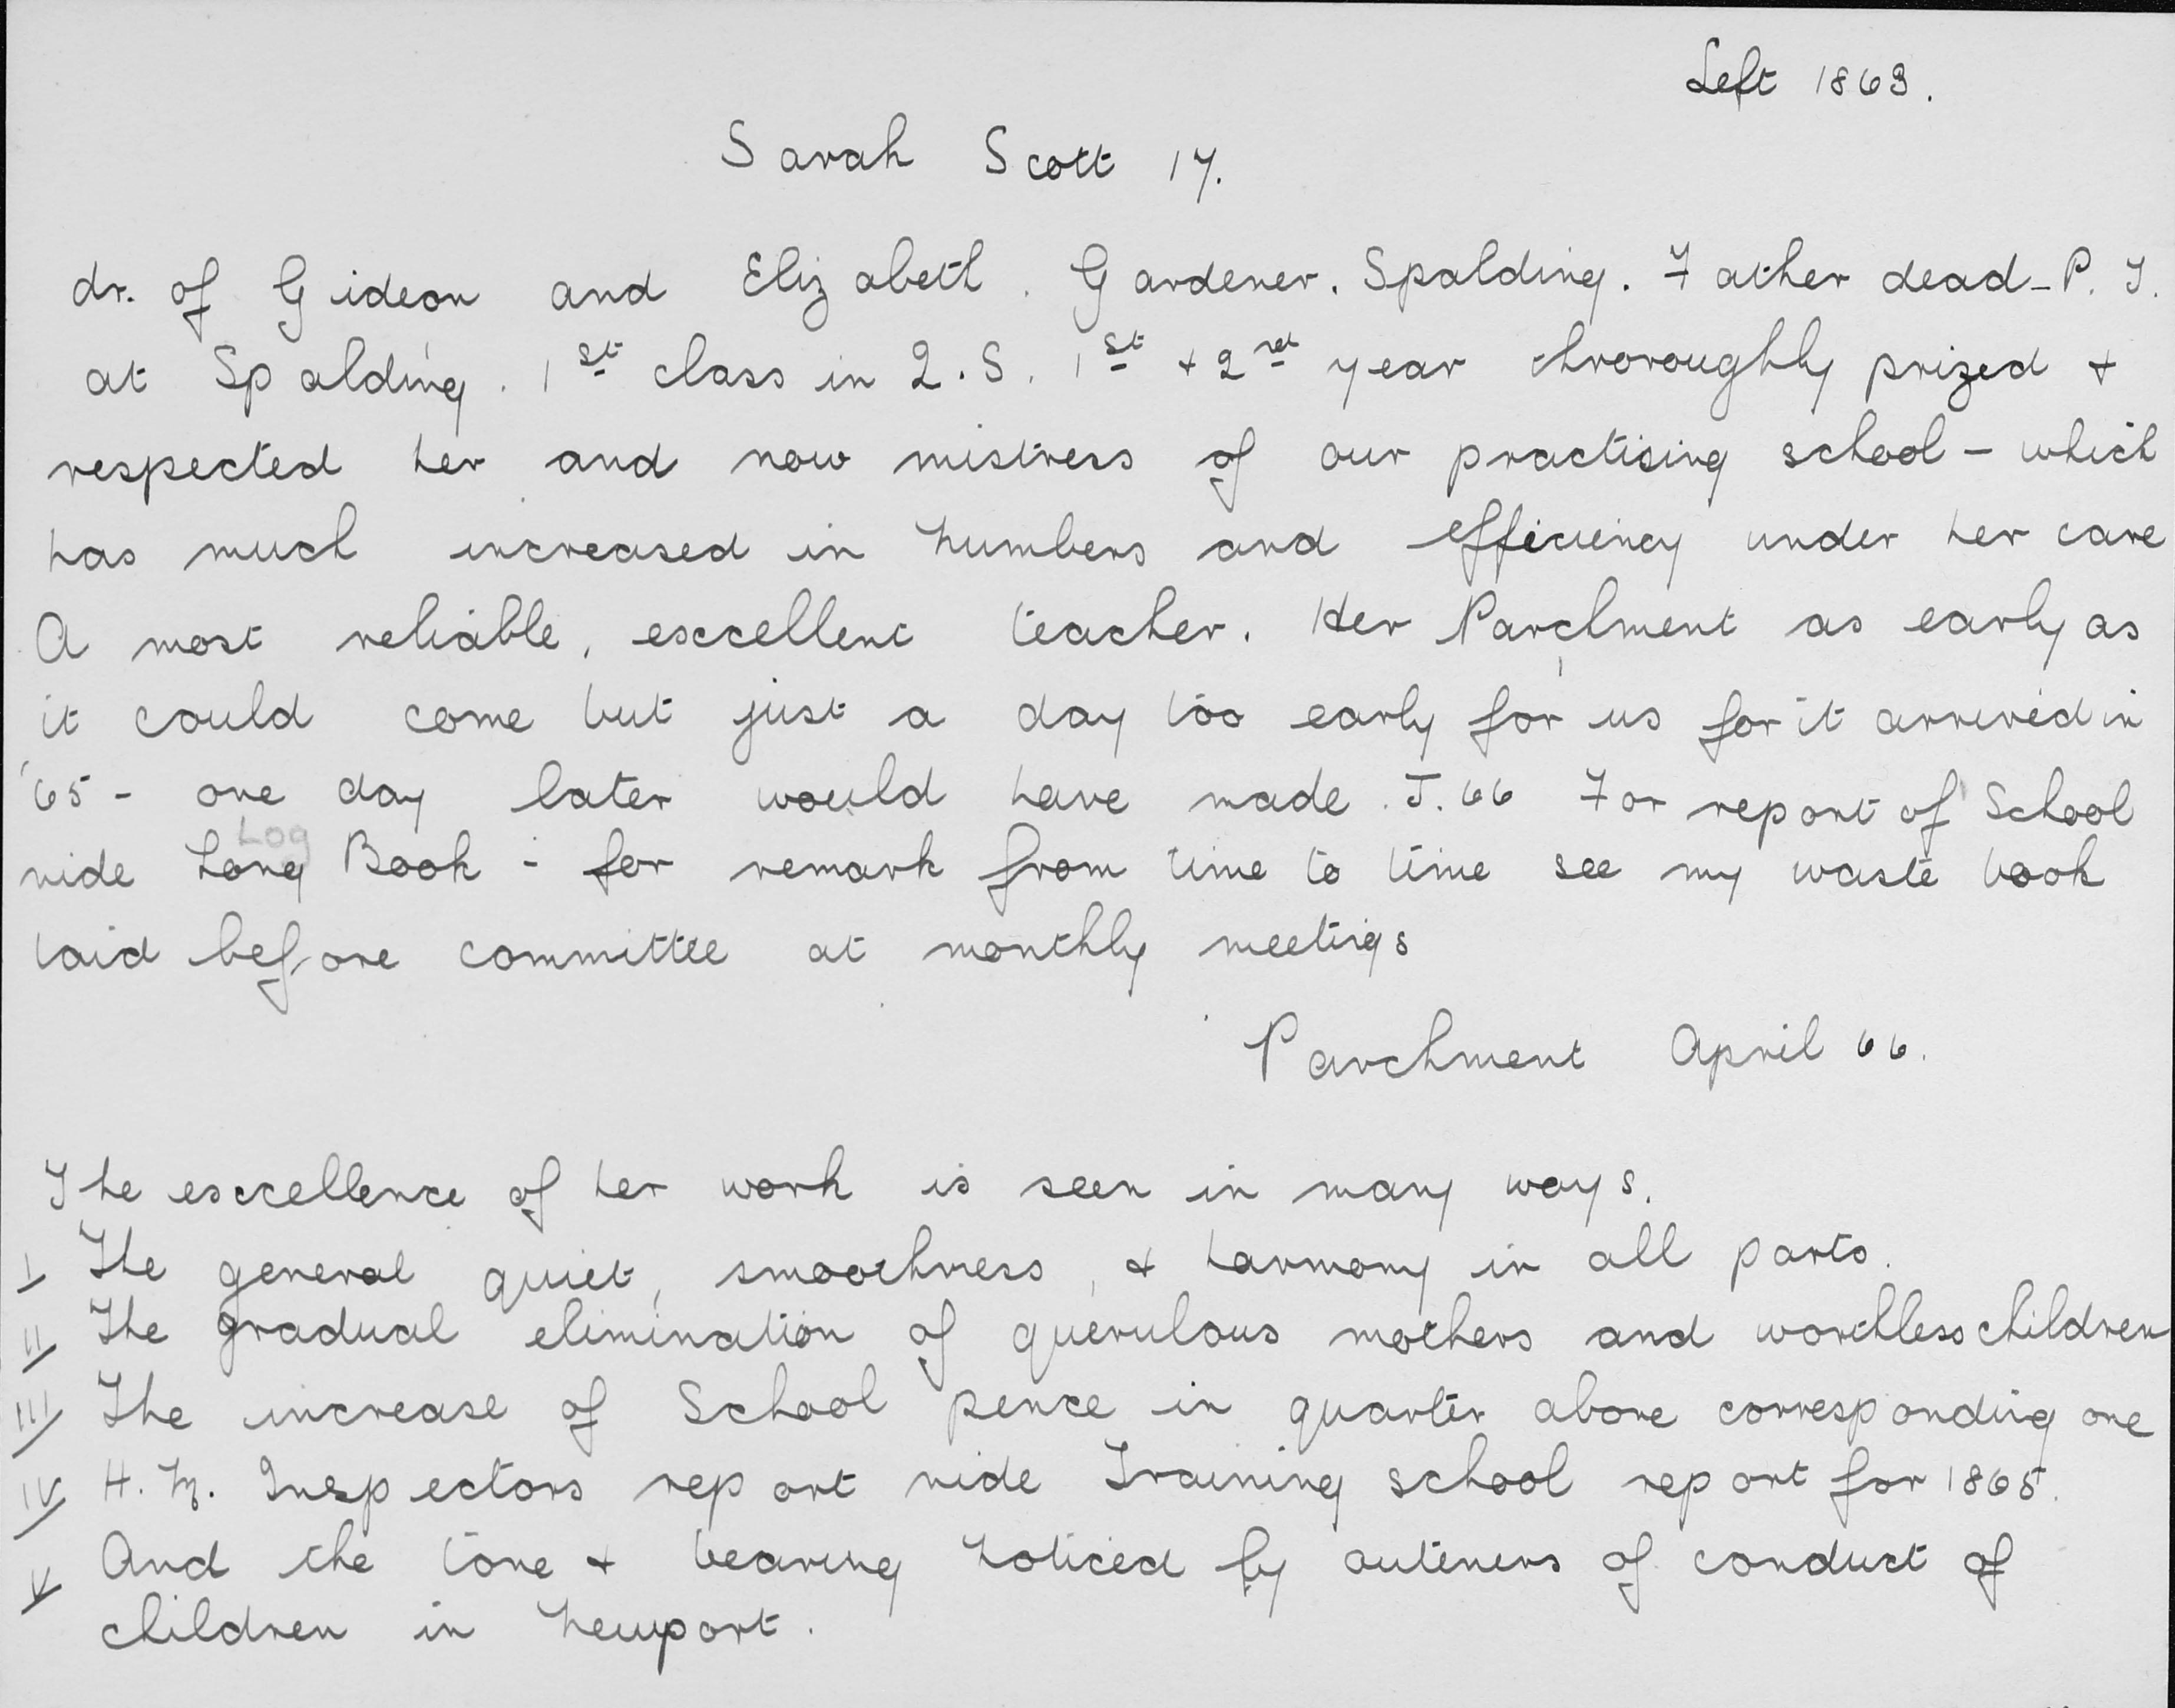 Left 1863.
Sarah Scott 17.
dr. of Gideon and Elizabeth. Gardener. Spalding. Father dead - P. T.
at Spalding. 1st class in Q. S. 1st + 2nd year throroughly prized +
respected her and now mistress of our practising school - which
has much increased in numbers and efficiency under her care
A most reliable, excellent teacher. Her Parchment as early as
it could come but just a day too early for us for it arrived in
'65 - one day later would have made J. 66 For report of School
Log
vide Long Book - for remark from time to time see my waste book
laid before committee at monthly meetings
Parchment April 66.
The excellence of her work is seen in many ways.
I The general quiet, smoothness, + harmony in all parts.
II The gradual elimination of querulous mothers and worthless children
III The increase of School pence in quarter above corresponding one
IV H. M. Inspectors report vide Training school report for 1865.
V And the tone + bearing noticed by outeners of conduct of
children in Newport.